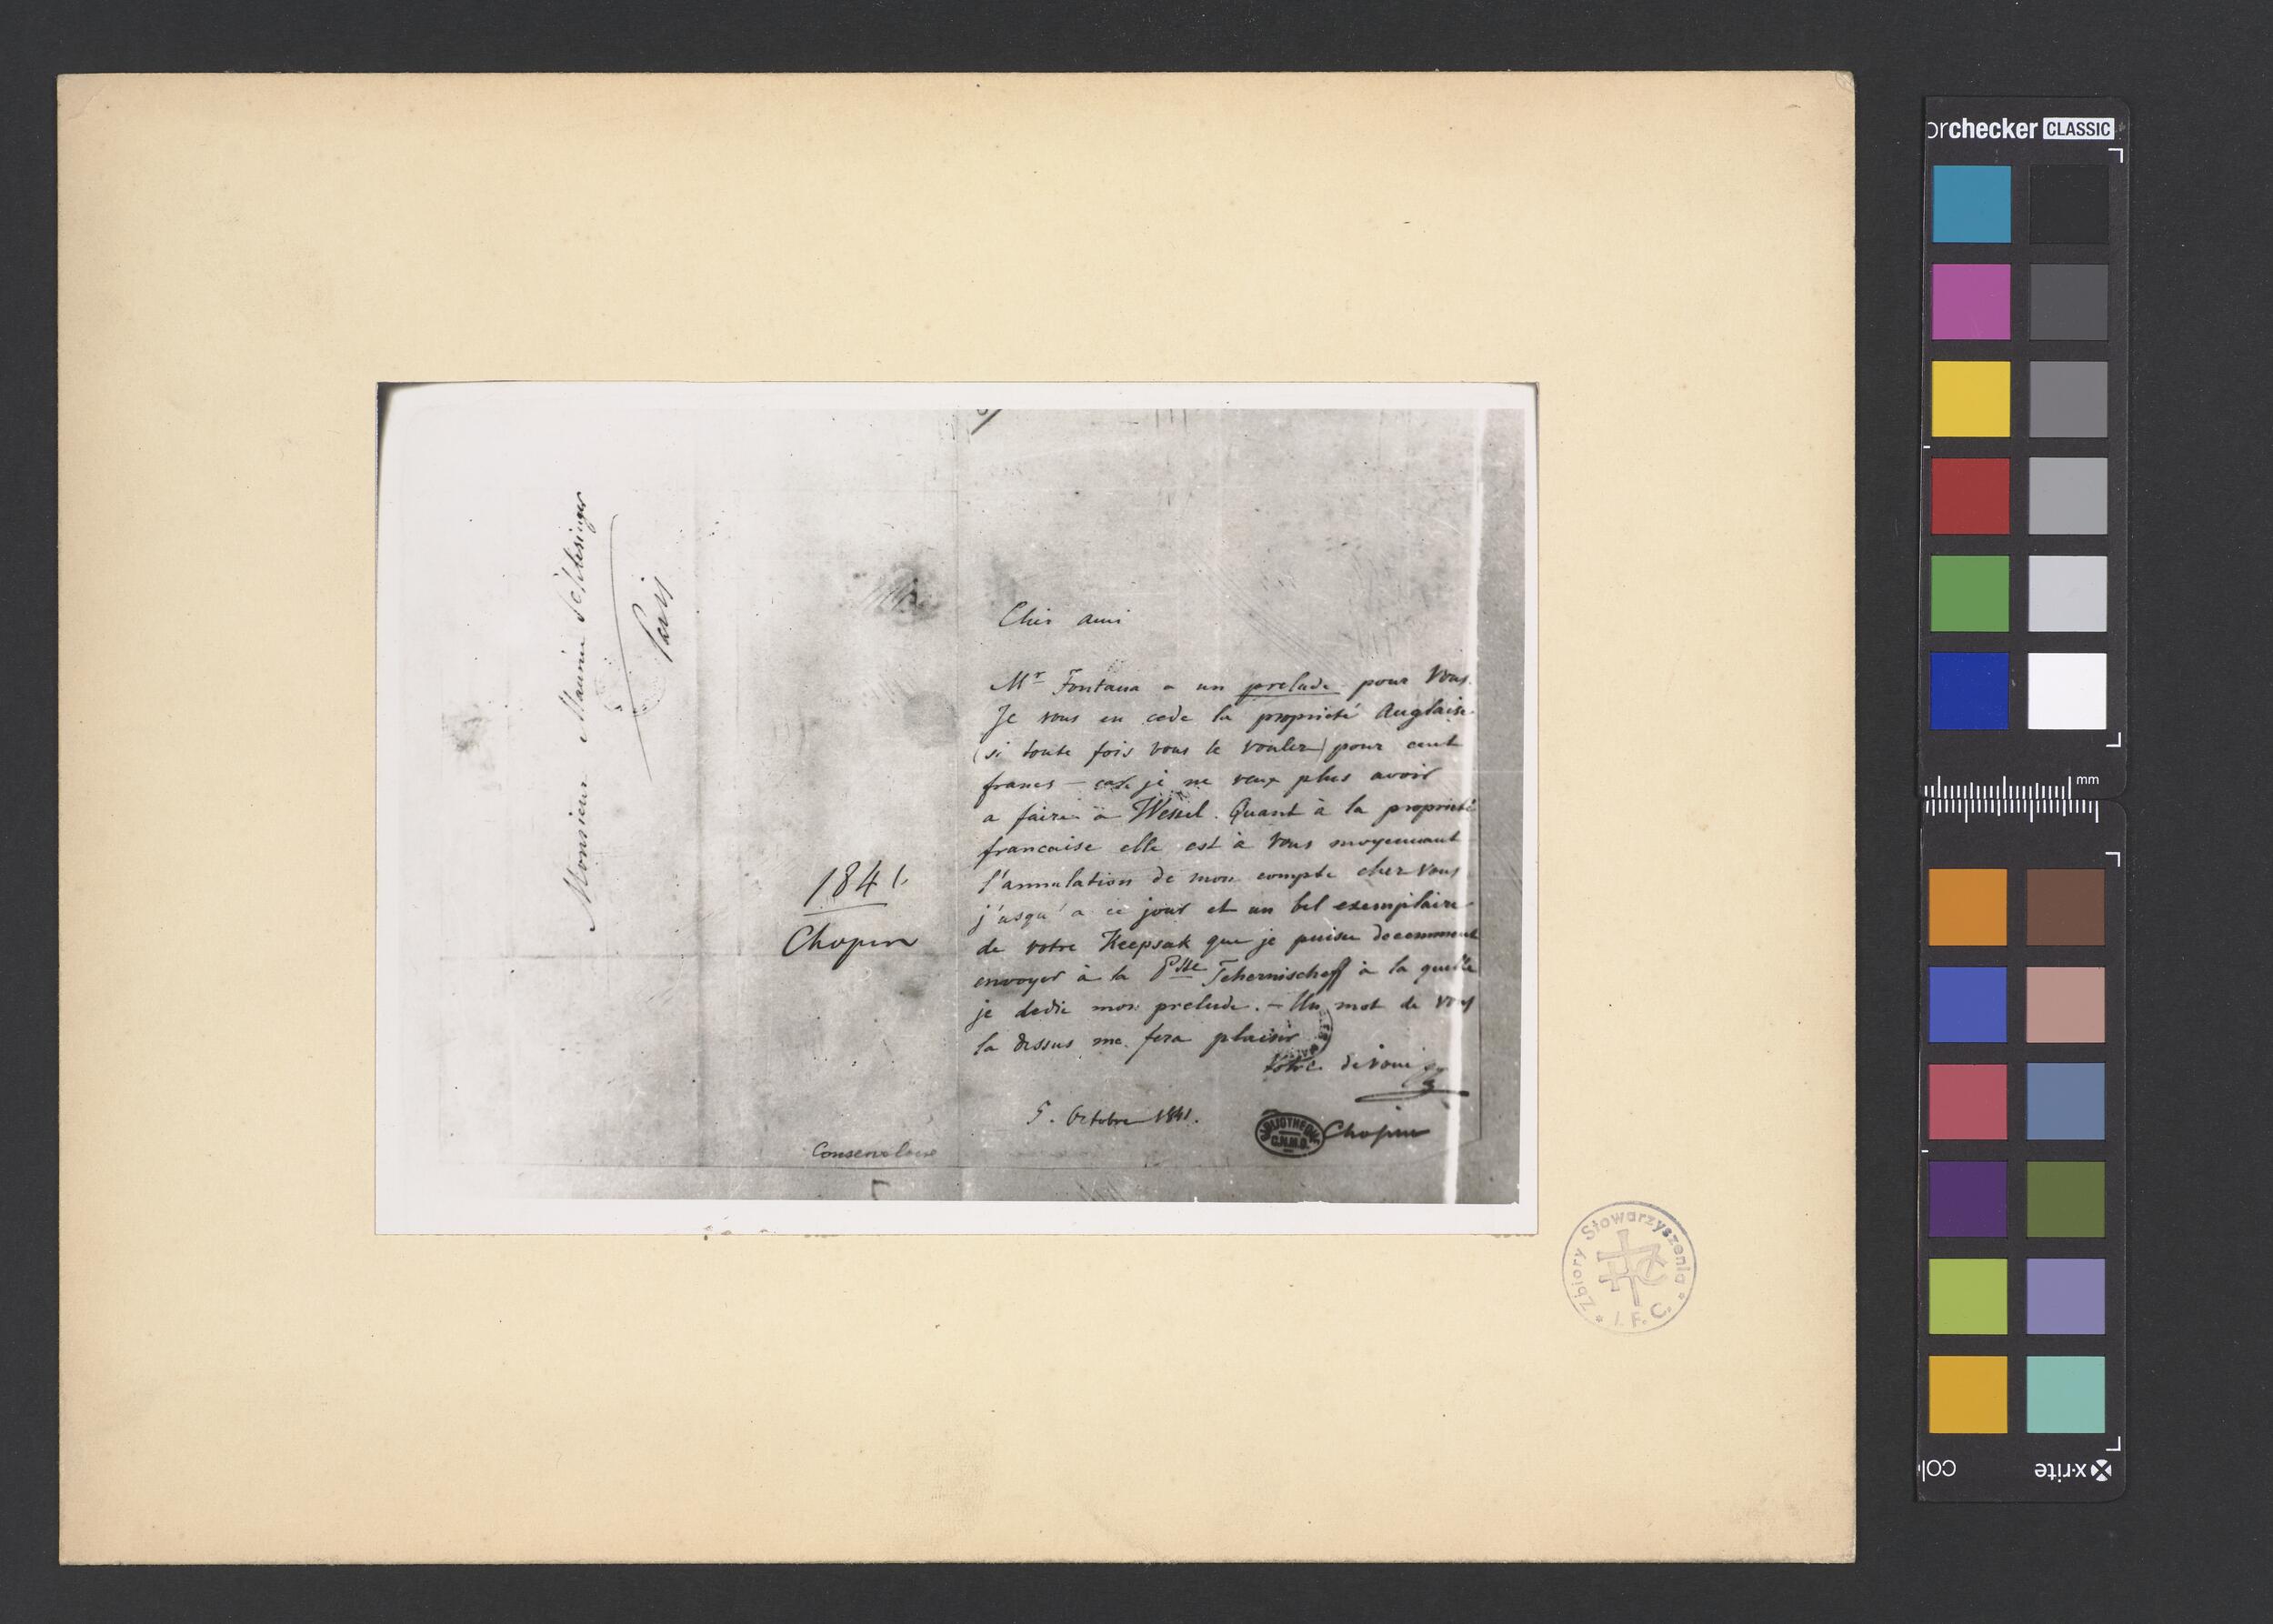 Monsieur Maurice Schlesinger
Paris
1841.
Chopin
Conservatoire
Cher ami
Mr Fontana a un prelude pour vous.
Je vous en cede la proprieté Anglaise
(si toute fois vous le voulez) pour cent
francs – car je ne veux plus avoir
a faire a Wessel. Quant à la proprieté
francaise elle est à vous moyennant
l'annulation de mon compte chez vous
j'usqu'a ce jour et un bel exemplaire
de votre Keepsak que je puisse decemment
envoyer à la Psse Tchernischeff à la quelle
je dedie mon prelude. – Un mot de vous
la dessus me fera plaisir
Votre devoué
5. Octobre 1841.
Chopin
BIBLIOTHEQUE
C.N.M.D.
Zbiory Stowarzyszenia
I. F. C.
orchecker CLASSIC
mm
colo
x-rite